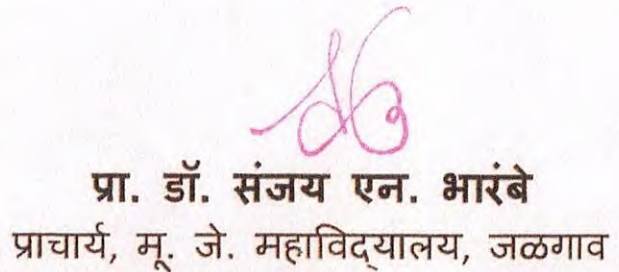 प्रा. डॉ. संजय एन. भारंबे
प्राचार्य, मू. जे. महाविद्यालय, जळगाव